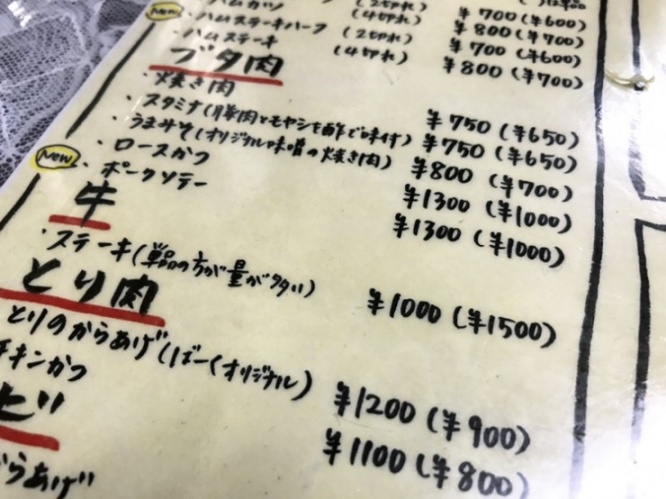 ハムカツ (2切れ) ¥700(¥600)
(4切れ) ¥800(¥700)
New ハムステーキハーフ (2切れ) ¥700(¥600)
ハムステーキ (4切れ) ¥800(¥700)
ブタ肉
・焼き肉 ¥750(¥650)
・スタミナ(豚肉とモヤシを酢で味付) ¥750(¥650)
・うまみそ(オリジナル味噌の焼き肉) ¥800(¥700)
・ロースかつ ¥1300(¥1000)
New ・ポークソテー ¥1300(¥1000)
牛
・ステーキ(単品の方が量が多い) ¥1000(¥1500)
とり肉
とりのからあげ(ばーくオリジナル) ¥1200(¥900)
チキンかつ ¥1100(¥800)
ビ
らあげ